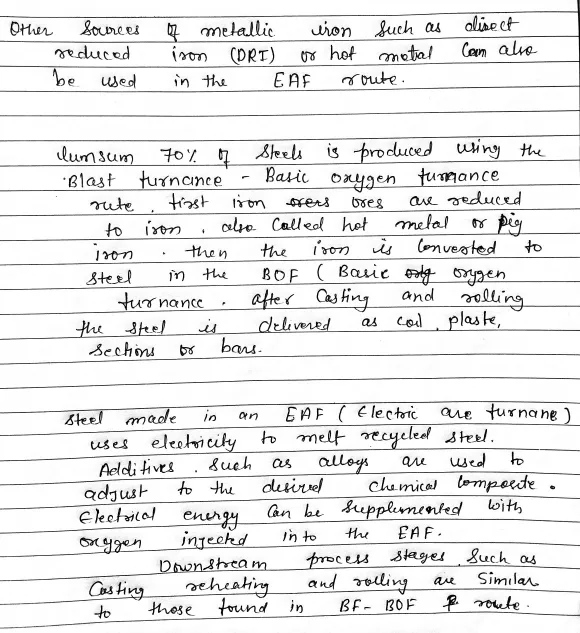 Other Sources of metallic iron Such as direct
reduced iron (DRI) or hot metal Can also
be used in the EAF route.
lumsum 70% of Steels is produced using the
Blast turnance - Basic oxygen turnance
rute. first iron ores are reduced
to iron, also Called hot metal or pig
iron. then the iron is Converted to
Steel in the BOF ( Basic oxygen
turnance. after Casting and rolling
the steel is delivered as coil, plaste,
Sections or bars.
Steel made in an EAF ( Electric are turnane )
uses electricity to melt recycled steel.
Additives. Such as alloys are used to
adjust to the desired chemical Composite.
Electrical energy Can be Supplemented with
oxygen injected in to the EAF.
Downstream process stages Such as
Casting reheating and rolling are Similar
to those found in BF- BOF route.